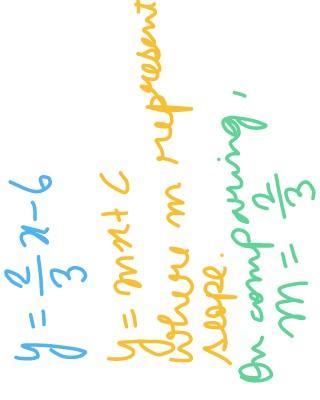 y = 2/3 x - 6
y = mx + c
where m represent
slope.
On comparing,
m = 2/3